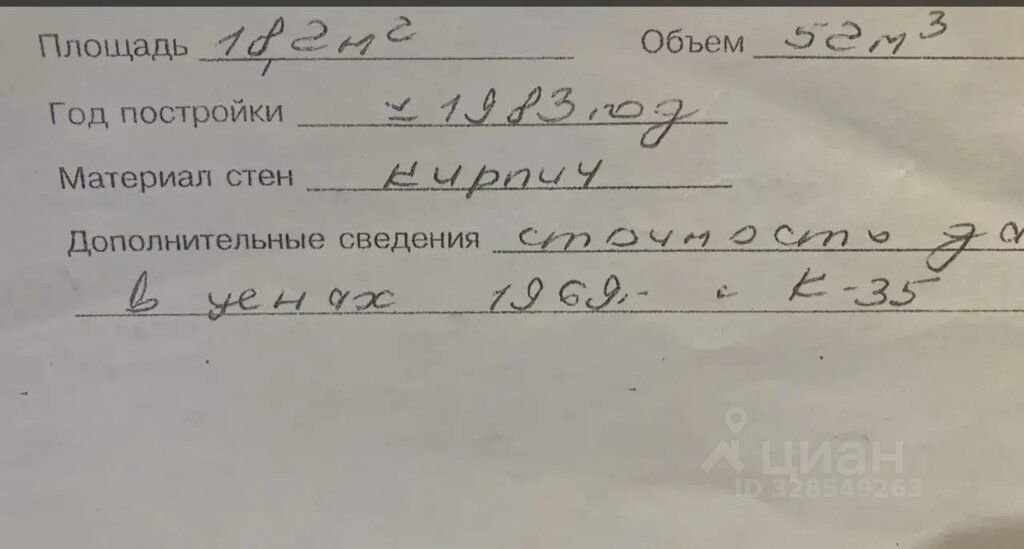 Площадь 18,2 м² Объем 52 м³
Год постройки ≃ 1983 год
Материал стен кирпич
Дополнительные сведения стоимость да
в ценах 1969.- с К-35
циан
ID 328549263